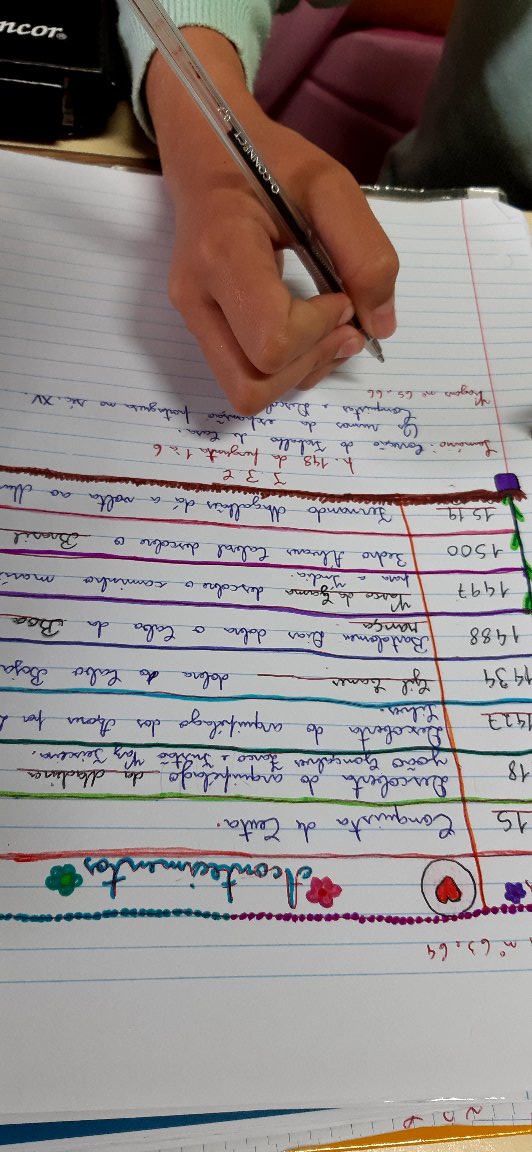 nº 63 e 64
Acontecimentos
15 Conquista de Ceuta.
18 Descoberta do arquipélago da Madeira
João Gonçalves Zarco e Tristão Vaz Teixeira.
1427 Descoberta do arquipélago dos Açores por
Silves.
1434 Gil Eanes dobra do Cabo Boja
1488 Bartolomeu Dias dobra o Cabo da Boa
rança
1497 Vasco da Gama descobre o caminho marí
para a Índia.
1500 Pedro Álvares Cabral descobre o Brasil
1519 Fernando Magalhães dá a volta ao
p. 148 da pergunta 1 à 6
Sumário: Correção do trabalho de casa.
Os rumos da expansão portuguesa no séc. XV.
Conquistas e Descob
nº 65 e 66
Q-CONNECT 0,7
ncor®